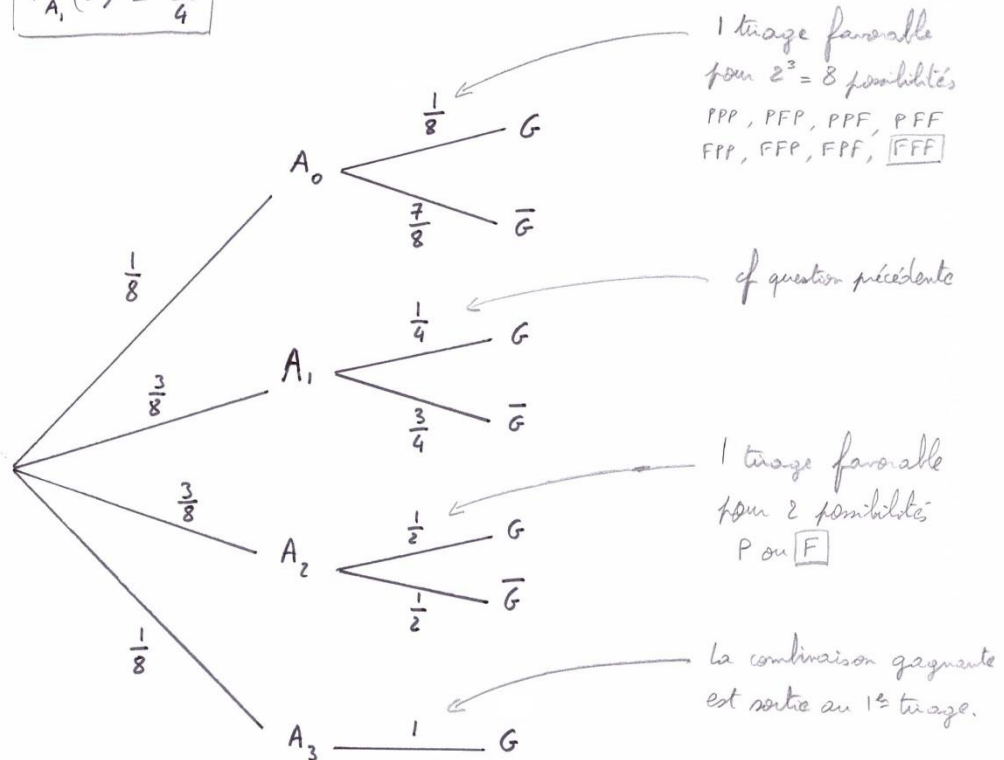 A₁ 4
1 tirage favorable
pour 2³ = 8 possibilités
PPP, PFP, PPF, PFF
FPP, FFP, FPF, FFF
1/8 G
A₀
7/8 G̅
1/8
cf question précédente
1/4 G
A₁
3/8
3/4 G̅
1 tirage favorable
pour 2 possibilités
P ou F
3/8
1/2 G
A₂
1/2 G̅
1/8
La combinaison gagnante
est sortie au 1er tirage.
A₃ 1 G